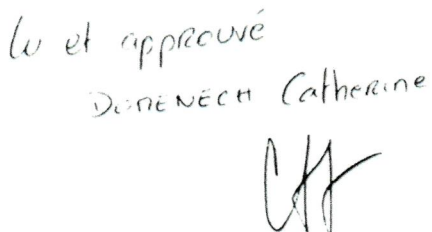 lu et approuvé
DOMENECH Catherine